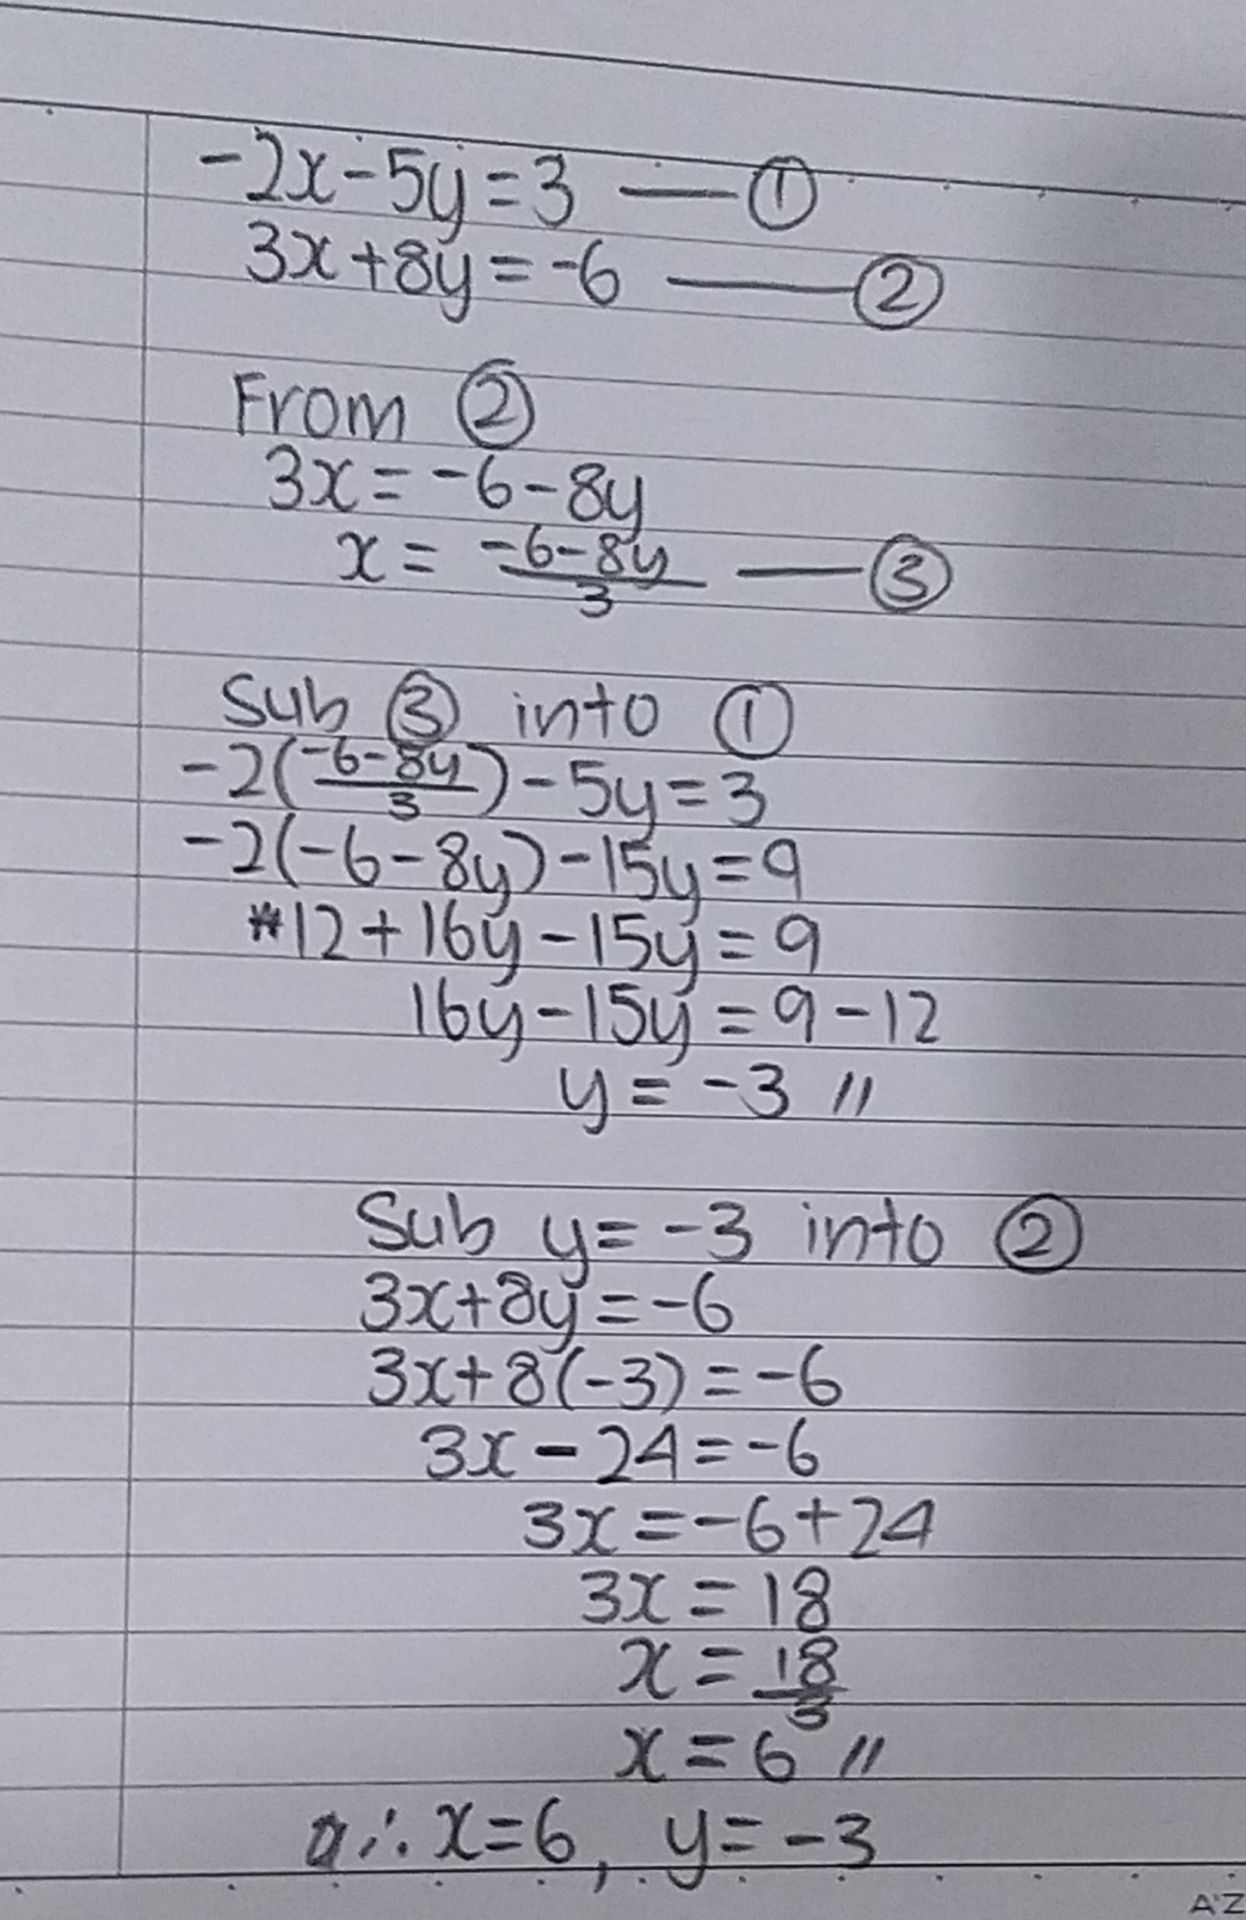 -2x-5y=3 —①
3x+8y=-6 —②
From ②
3x=-6-8y
x=\frac{-6-8y}{3} —③
Sub ③ into ①
-2(\frac{-6-8y}{3})-5y=3
-2(-6-8y)-15y=9
12+16y-15y=9
16y-15y=9-12
y=-3 //
Sub y=-3 into ②
3x+8y=-6
3x+8(-3)=-6
3x-24=-6
3x=-6+24
3x=18
x=\frac{18}{3}
x=6 //
∴ x=6, y=-3
A'Z